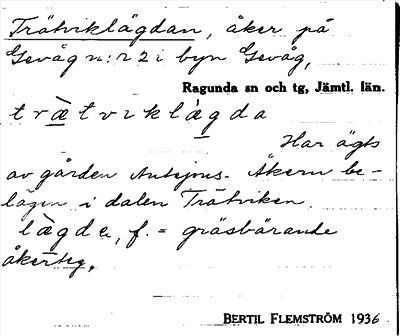 Trätviklägdan, åker på
Gevåg n:r 2 i byn Gevåg,
Ragunda sn och tg, Jämtl. län.
trä̀tviklä̀gda
Har ägts
av gården Antejons. Åkern be-
lägen i dalen Trätviken.
lä̀gde, f. = gräsbärande
åkerteg.
BERTIL FLEMSTRÖM 1936